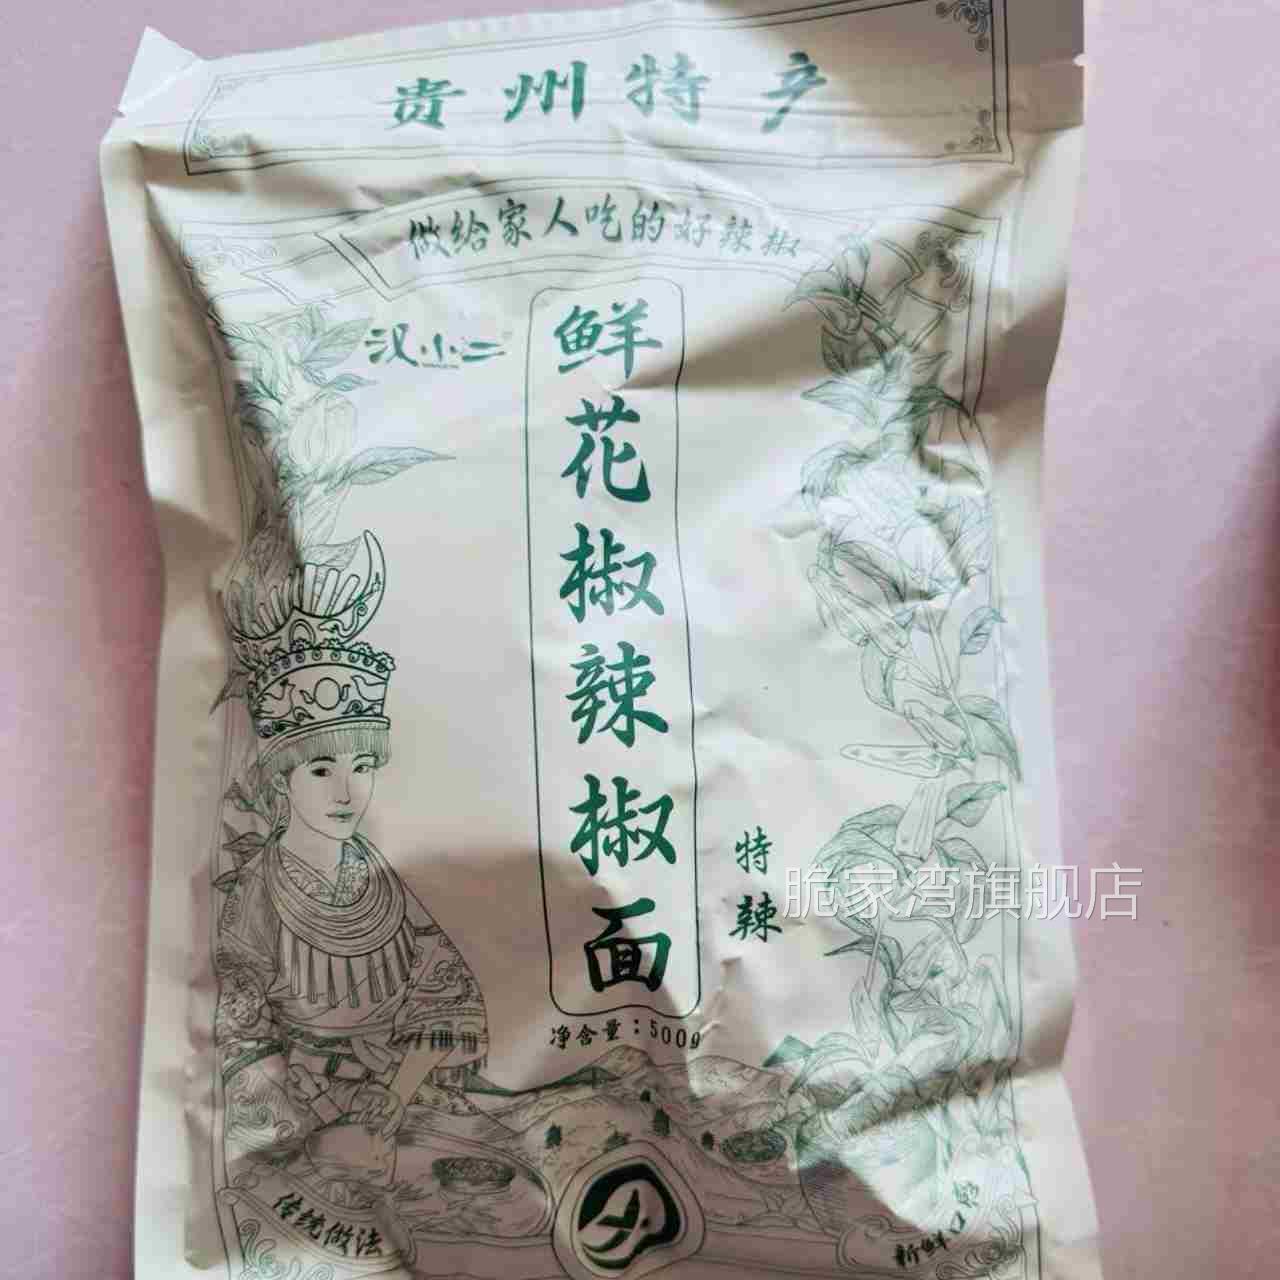 贵州特产
做给家人吃的好辣椒
汉小二
鲜花椒辣椒面
特辣
脆家湾旗舰店
净含量：500g
传统做法